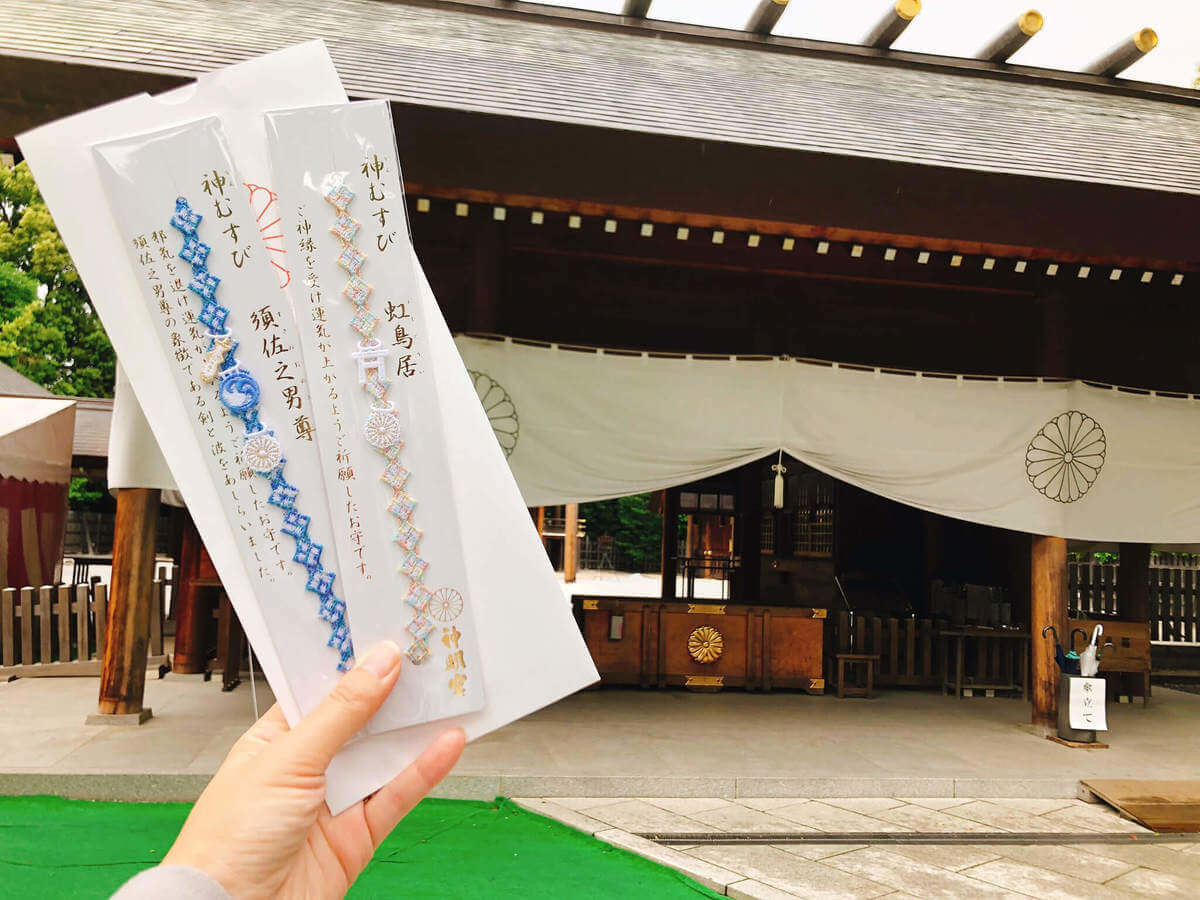 神むすび
須佐之男尊
邪気を退け運気が るようご祈願したお守です。
須佐之男尊の象徴である剣と波をあしらいました。
神むすび
虹鳥居
ご神縁を受け運気が上がるようご祈願したお守です。
神明宮
傘立て